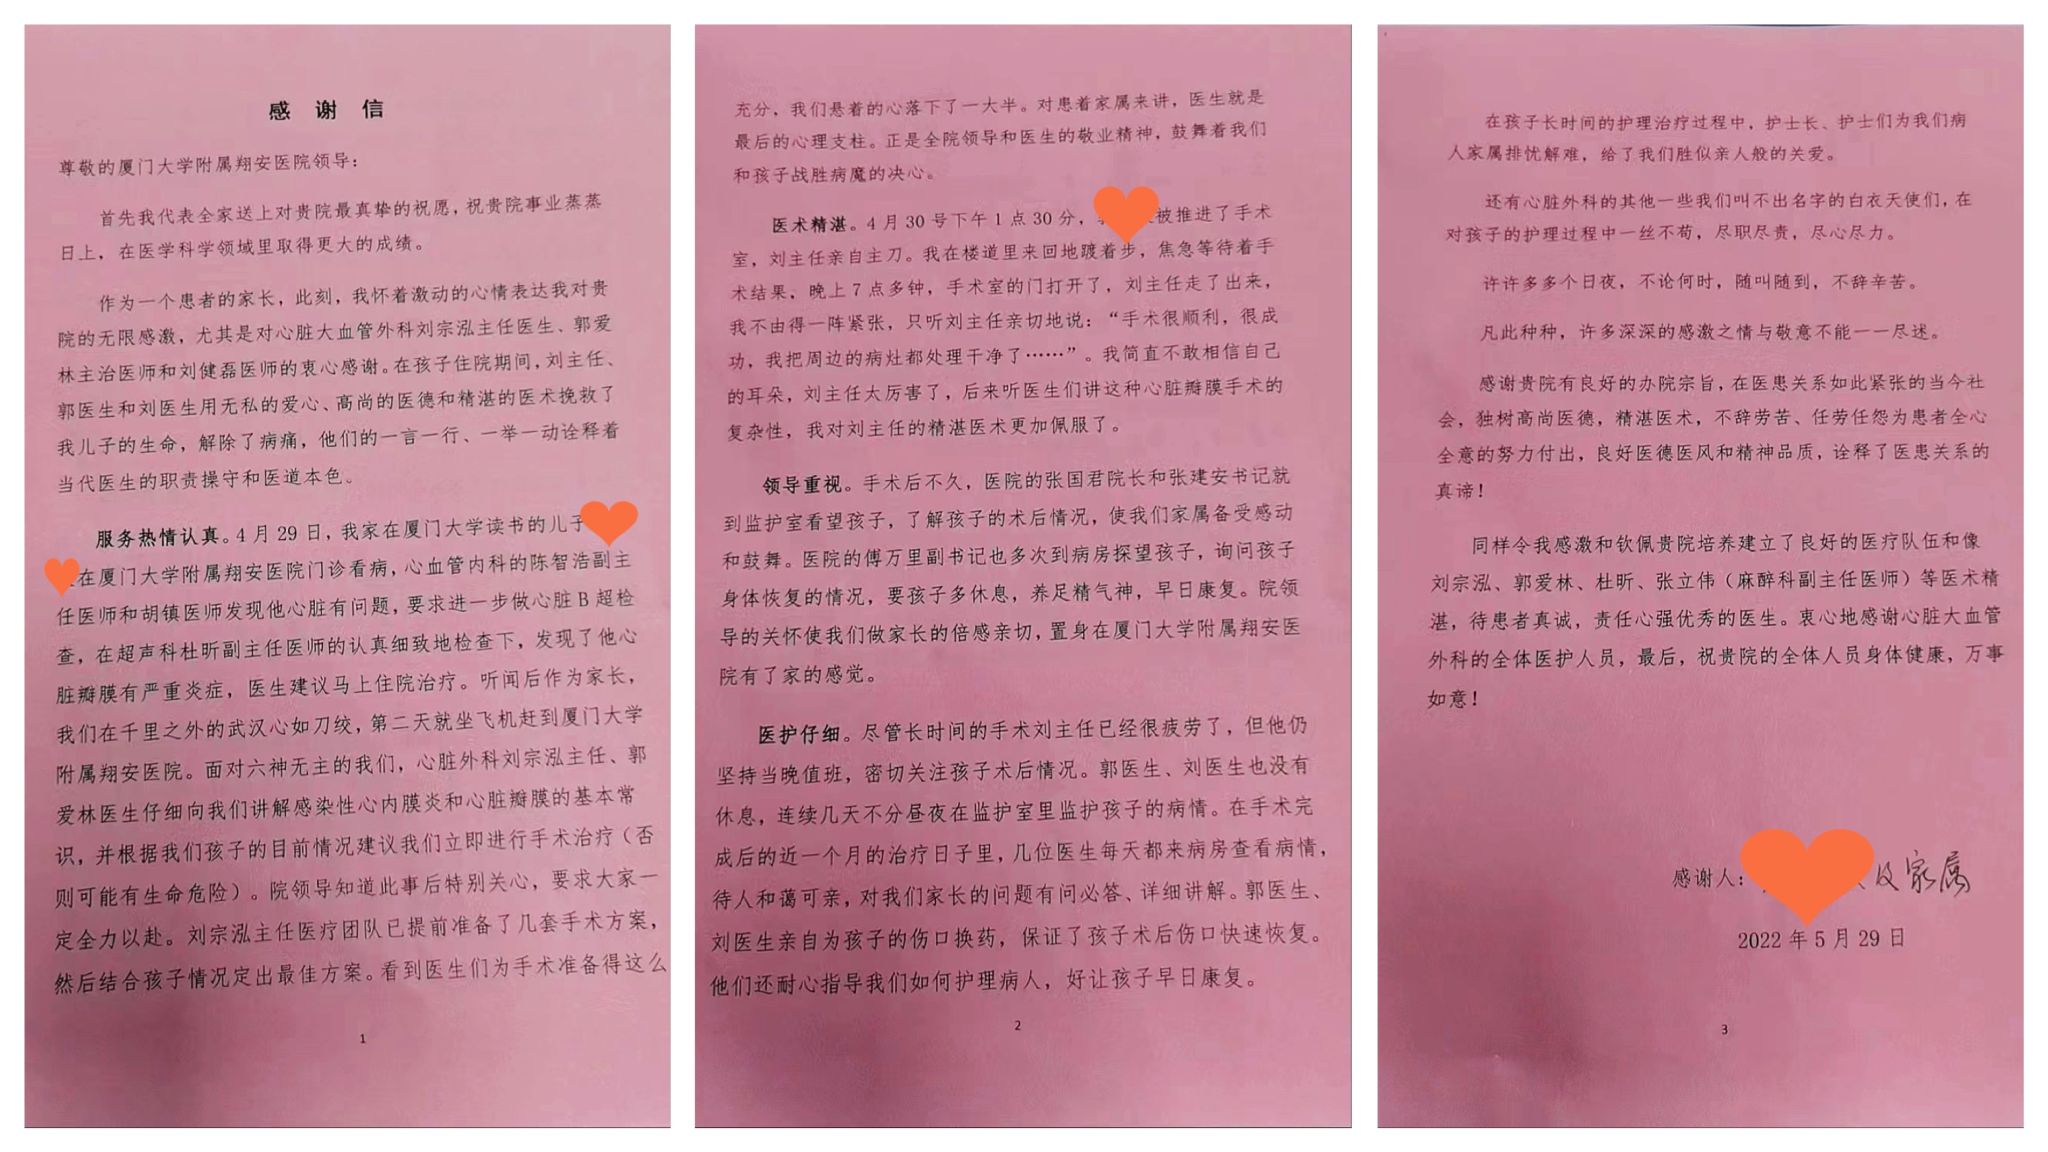 感 谢 信
尊敬的厦门大学附属翔安医院领导：
首先我代表全家送上对贵院最真挚的祝愿，祝贵院事业蒸蒸
日上，在医学科学领域里取得更大的成绩。
作为一个患者的家长，此刻，我怀着激动的心情表达我对贵
院的无限感激，尤其是对心脏大血管外科刘宗泓主任医生、郭爱
林主治医师和刘健磊医师的衷心感谢。在孩子住院期间，刘主任、
郭医生和刘医生用无私的爱心、高尚的医德和精湛的医术挽救了
我儿子的生命，解除了病痛，他们的一言一行、一举一动诠释着
当代医生的职责操守和医道本色。
服务热情认真。4 月 29 日，我家在厦门大学读书的儿子
在厦门大学附属翔安医院门诊看病，心血管内科的陈智浩副主
任医师和胡镇医师发现他心脏有问题，要求进一步做心脏 B 超检
查，在超声科杜昕副主任医师的认真细致地检查下，发现了他心
脏瓣膜有严重炎症，医生建议马上住院治疗。听闻后作为家长，
我们在千里之外的武汉心如刀绞，第二天就坐飞机赶到厦门大学
附属翔安医院。面对六神无主的我们，心脏外科刘宗泓主任、郭
爱林医生仔细向我们讲解感染性心内膜炎和心脏瓣膜的基本常
识，并根据我们孩子的目前情况建议我们立即进行手术治疗（否
则可能有生命危险）。院领导知道此事后特别关心，要求大家一
定全力以赴。刘宗泓主任医疗团队已提前准备了几套手术方案，
然后结合孩子情况定出最佳方案。看到医生们为手术准备得这么
1
充分，我们悬着的心落下了一大半。对患着家属来讲，医生就是
最后的心理支柱。正是全院领导和医生的敬业精神，鼓舞着我们
和孩子战胜病魔的决心。
医术精湛。4 月 30 号下午 1 点 30 分，被推进了手术
室，刘主任亲自主刀。我在楼道里来回地踱着步，焦急等待着手
术结果，晚上 7 点多钟，手术室的门打开了，刘主任走了出来，
我不由得一阵紧张，只听刘主任亲切地说：“手术很顺利，很成
功，我把周边的病灶都处理干净了……”。我简直不敢相信自己
的耳朵，刘主任太厉害了，后来听医生们讲这种心脏瓣膜手术的
复杂性，我对刘主任的精湛医术更加佩服了。
领导重视。手术后不久，医院的张国君院长和张建安书记就
到监护室看望孩子，了解孩子的术后情况，使我们家属备受感动
和鼓舞。医院的傅万里副书记也多次到病房探望孩子，询问孩子
身体恢复的情况，要孩子多休息，养足精气神，早日康复。院领
导的关怀使我们做家长的倍感亲切，置身在厦门大学附属翔安医
院有了家的感觉。
医护仔细。尽管长时间的手术刘主任已经很疲劳了，但他仍
坚持当晚值班，密切关注孩子术后情况。郭医生、刘医生也没有
休息，连续几天不分昼夜在监护室里监护孩子的病情。在手术完
成后的近一个月的治疗日子里，几位医生每天都来病房查看病情，
待人和蔼可亲，对我们家长的问题有问必答、详细讲解。郭医生、
刘医生亲自为孩子的伤口换药，保证了孩子术后伤口快速恢复。
他们还耐心指导我们如何护理病人，好让孩子早日康复。
2
在孩子长时间的护理治疗过程中，护士长、护士们为我们病
人家属排忧解难，给了我们胜似亲人般的关爱。
还有心脏外科的其他一些我们叫不出名字的白衣天使们，在
对孩子的护理过程中一丝不苟，尽职尽责，尽心尽力。
许许多多个日夜，不论何时，随叫随到，不辞辛苦。
凡此种种，许多深深的感激之情与敬意不能一一尽述。
感谢贵院有良好的办院宗旨，在医患关系如此紧张的当今社
会，独树高尚医德，精湛医术，不辞劳苦、任劳任怨为患者全心
全意的努力付出，良好医德医风和精神品质，诠释了医患关系的
真谛！
同样令我感激和钦佩贵院培养建立了良好的医疗队伍和像
刘宗泓、郭爱林、杜昕、张立伟（麻醉科副主任医师）等医术精
湛，待患者真诚，责任心强优秀的医生。衷心地感谢心脏大血管
外科的全体医护人员，最后，祝贵院的全体人员身体健康，万事
如意！
感谢人：及家属
2022 年 5 月 29 日
3